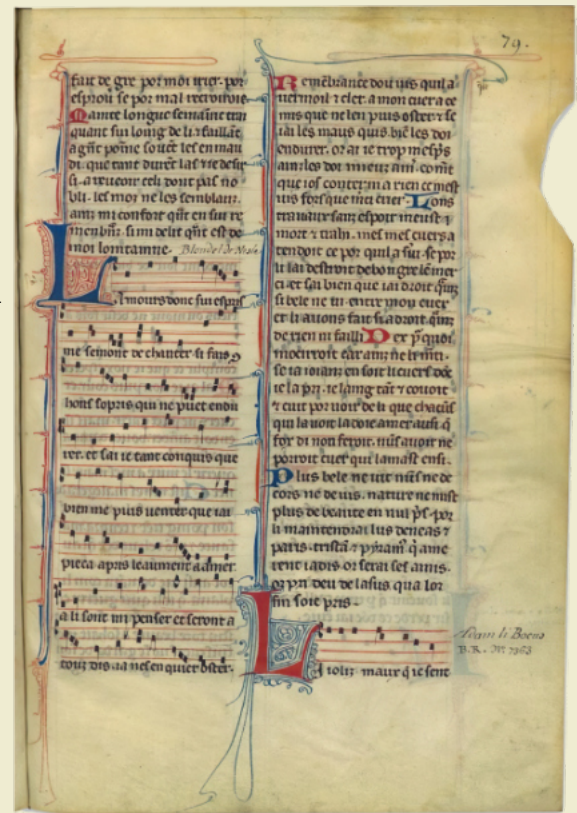 79.
faut de gre por moi
esprou se por mal
ainte longue semaine
quant sui loing de li
agnt poine souet les en mau
di. que tant durēt las
si. a reveoir celi dont pas no
bli. les mor ne les semblanz.
ainz mi confort qnt en sui re
menbrīz. si mi delit qnt est de
moi lontainne. Blondel de Nesle
L
Amours donc sui espris
me semont de chanter si fais
hons sopris qui ne puet endu
rer. et sai ie tant conquis que
bien me puis venter que iai
pieca apris leaument a amer
a li sont mi penser et seront a
touz dis. ia nes en quier oster.
Remēbrance dou vis quil a
vermoil τ cler. a mon cuer a ce
mis que ne len puis oster τ se
iai les maus quis biē les doi
endurer. or ai ie trop mespīs
ainz les doi mieuz am. comt
que ios conter ni a rien ce mest
vis fors que merci crier. Lons
travauz sanz espoir meust
mort τ trahi. mes mes cuers a
tendoit ce por quil a sui. se por
li lai destroit de bon gre
ci. et sai bien que iai droit
si bele ne vi. entre mon cuer
et li avons fait si a droit
de rien ni failli Dex
mocirroit car ainz ne li
se ia ioianz en soit li cuers dōt
ie la pri. ie laing tāt τ covoit
τ cuit por voir de li que chacūs
qui la voit la doie amer ausi
for di non feroit. nus avoir ne
porroit cuer qui lamast ensi.
Plus bele ne vit nūs ne de
cors ne de vis. nature ne mist
plus de beaute en nul
li maintendrai lus deneas τ
paris. tristā τ pyram q ame
rent iadis or serai ses amis.
or prī deu de lasus qua lor
fin soie pris.
L
i iolis maux q ie sent
Adam li Bocus
B. R. No.